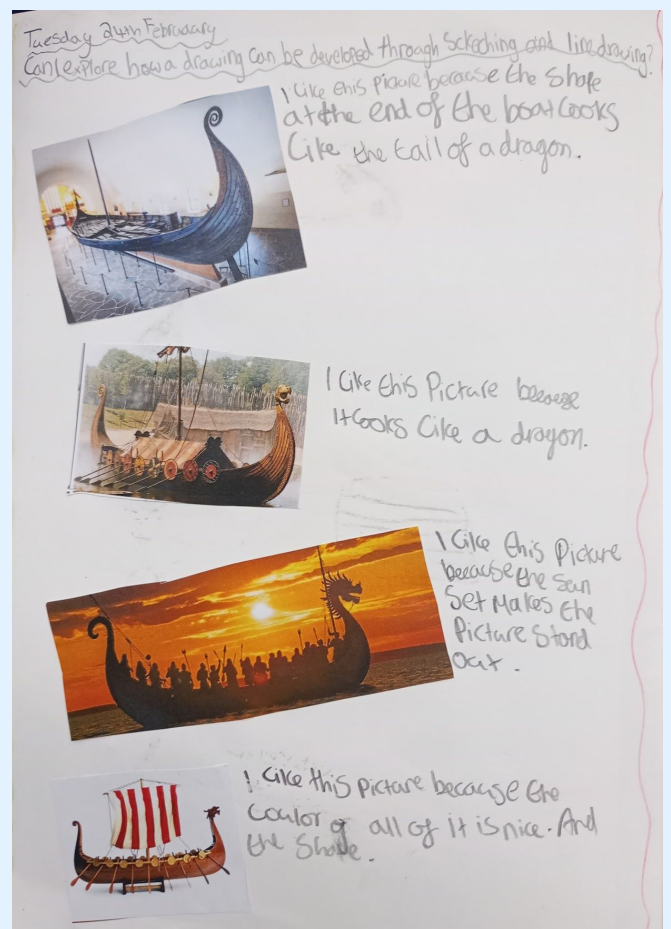 Tuesday 24th Februrary
Can I explore how a drawing can be developed through Sckeching and line drawing?
I Like this picture because the Shape
at the end of the boat Looks
Like the tail of a dragon.
I Like this Picture because
It Looks Like a dragon.
I Like this Picture
because the Sun
Set Makes the
Picture Stand
Out.
I Like this picture because the
Coulor of all of it is nice. And
the Shape.